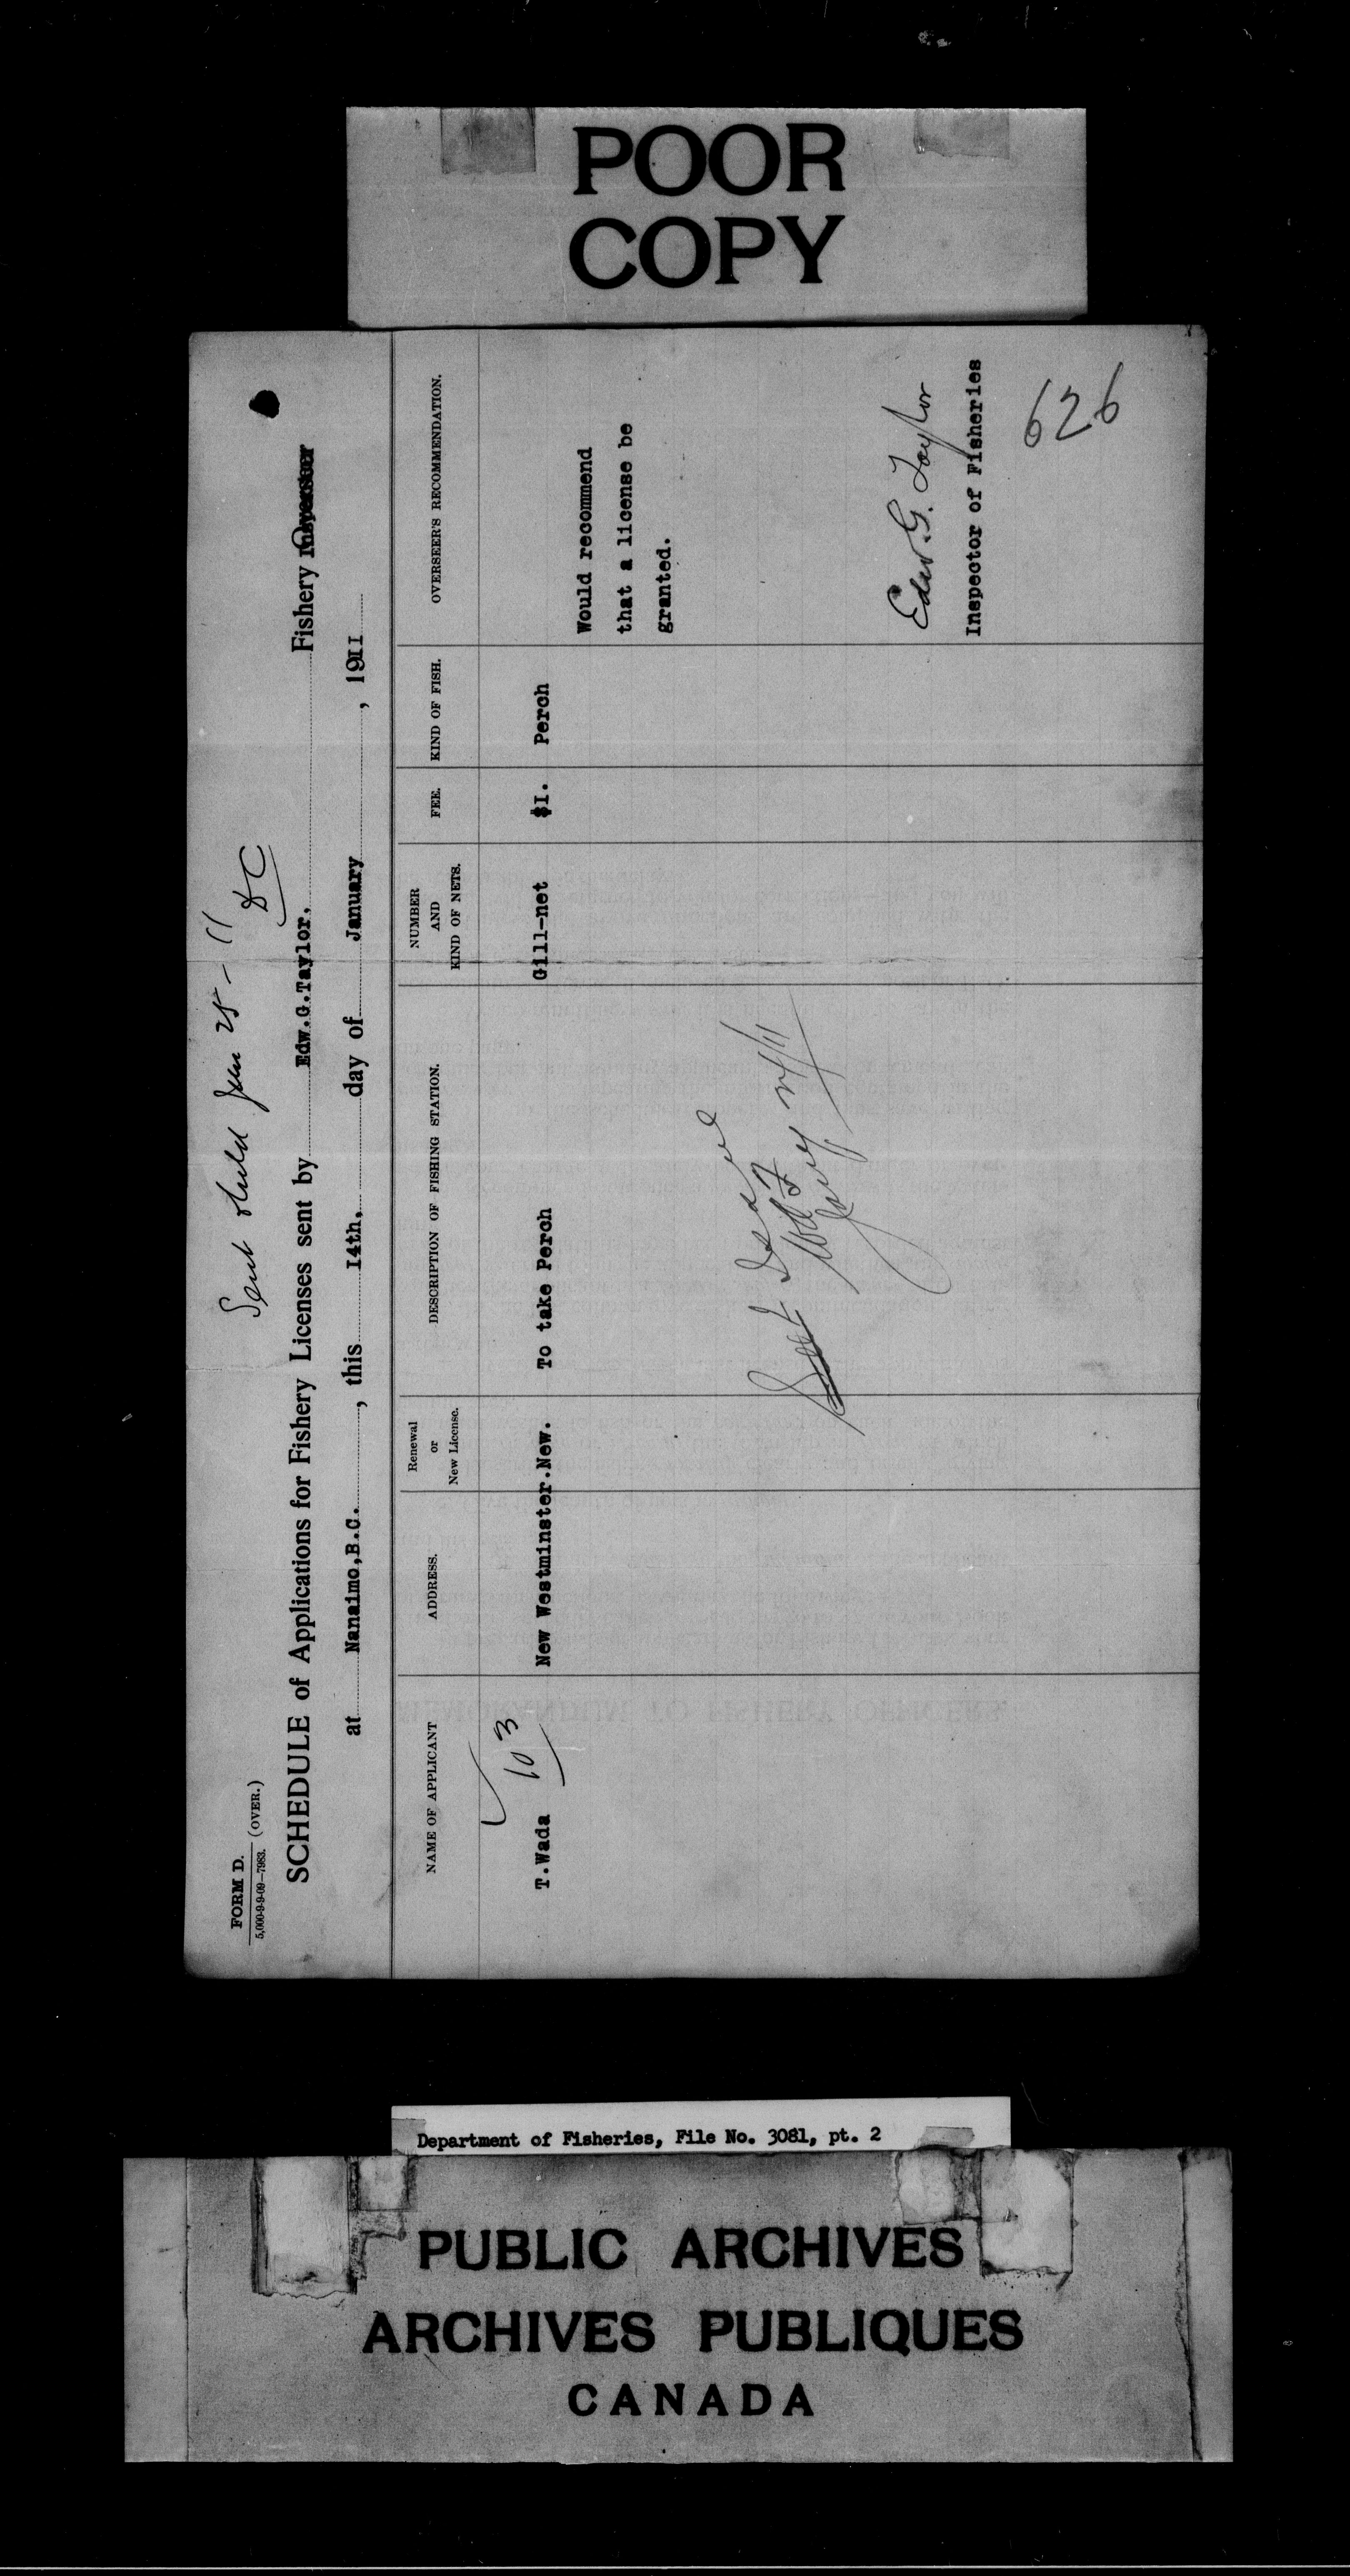 POOR
COPY
Sent Jan 25 - 11
DC
FORM D.
5,000-9-9-09—7983.
(OVER.)
SCHEDULE of Applications for Fishery Licenses sent by Edw.G.Taylor, Fishery
at Nanaimo,B.C. , this I4th. day of January , 19II
NAME OF APPLICANT
ADDRESS.
Renewal
or
New License.
DESCRIPTION OF FISHING STATION.
NUMBER
AND
KIND OF NETS.
FEE.
KIND OF FISH.
OVERSEER'S RECOMMENDATION.
103
T.Wada New Westminster.New. To take Perch Gill-net $I. Perch
Would recommend
that a license be
granted.
Edw. G. Taylor
Inspector of Fisheries
626
Department of Fisheries, File No. 3081, pt. 2
PUBLIC ARCHIVES
ARCHIVES PUBLIQUES
CANADA